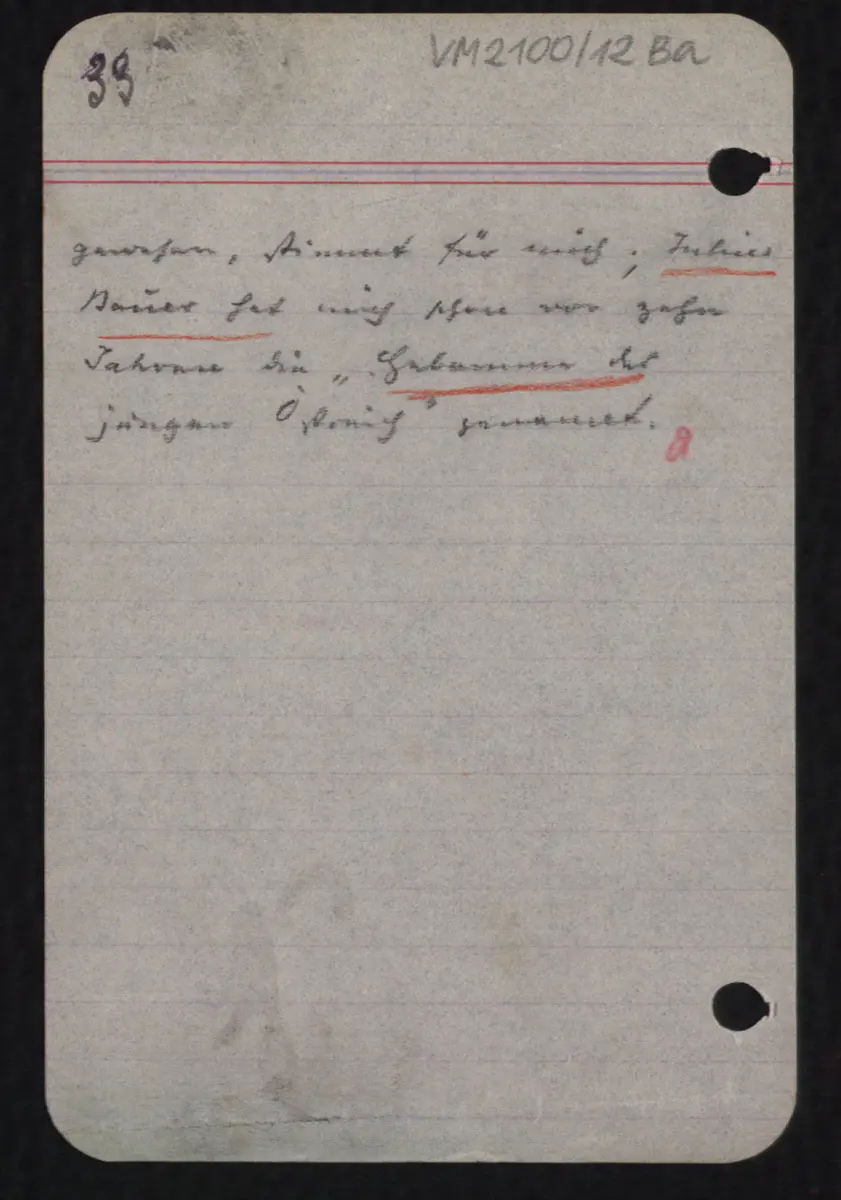 33
VM2100/12 Ba
gewesen, stimmt für mich; Julius
Bauer hat mich schon vor zehn
Jahren die „Hebamme des
jungen Östreich" genannt.